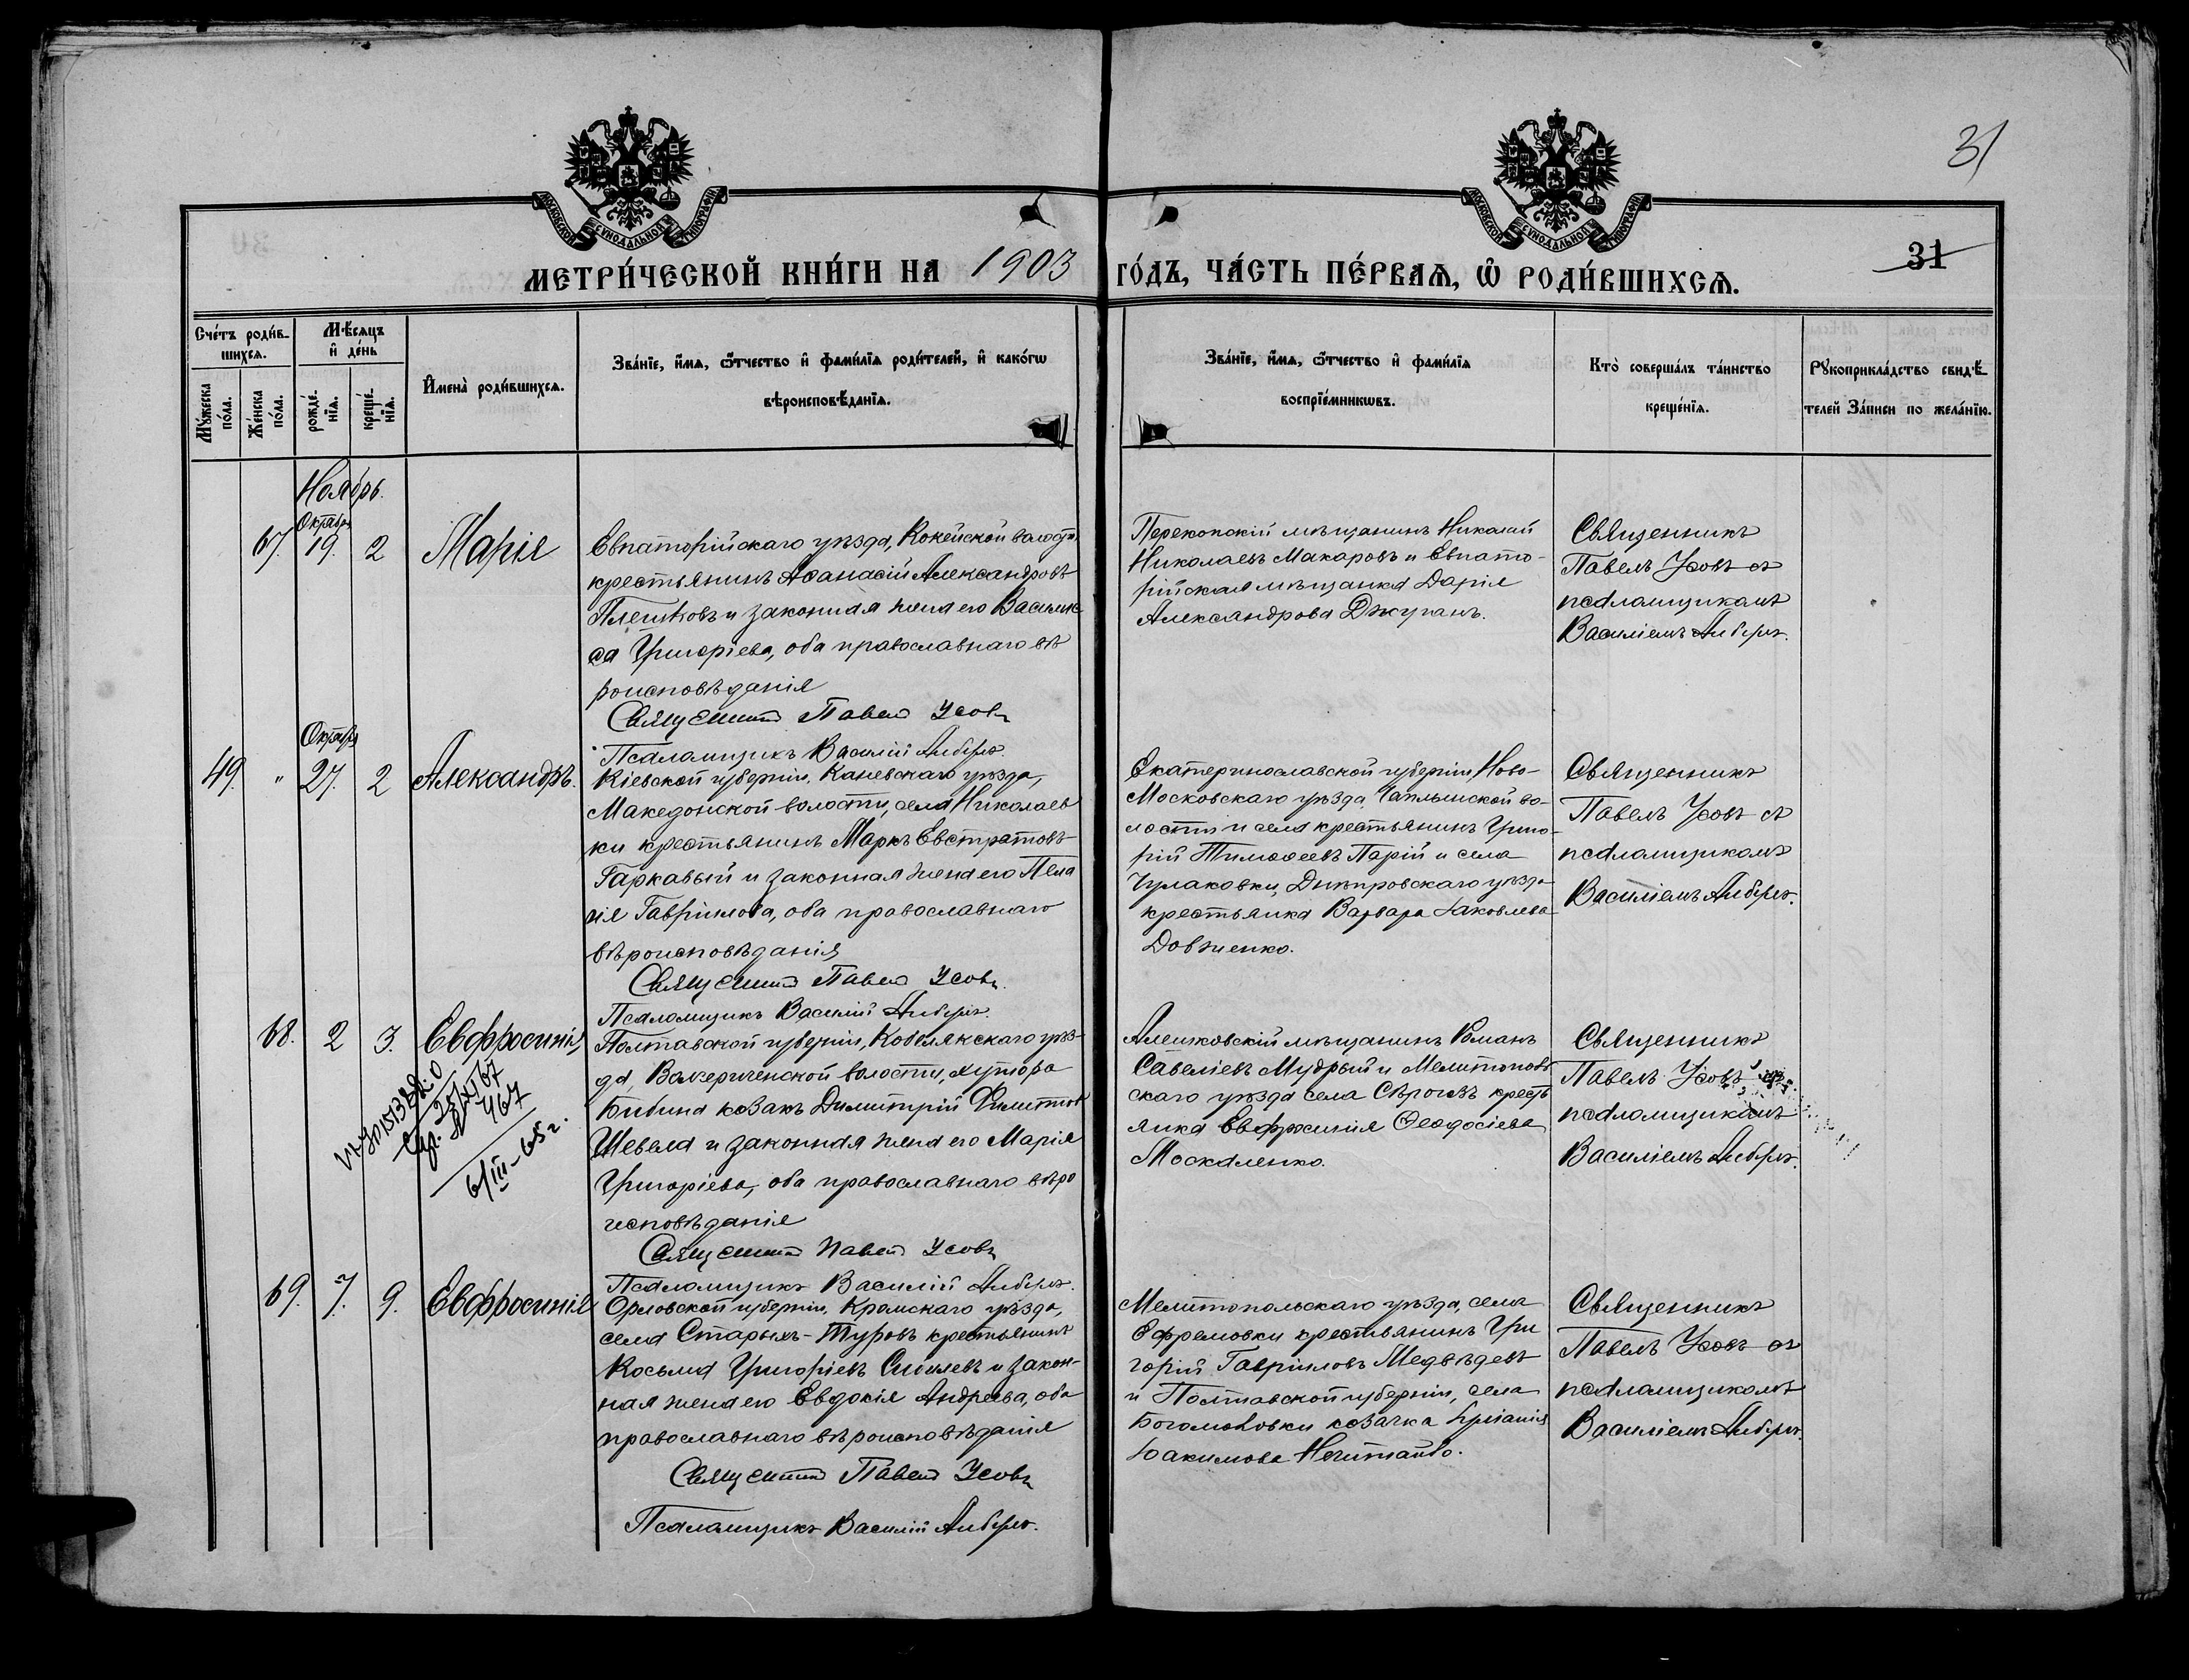 31
МОСКОВСКОЙ СѴНОДАЛЬНОЙ ТИПОГРАФІИ
МОСКОВСКОЙ СѴНОДАЛЬНОЙ ТИПОГРАФІИ
МЕТРИ́ЧЕСКОЙ КНИ́ГИ НА 1903 ГО́ДЪ, ЧА́СТЬ ПЕ́РВАѦ, Ѡ҆ РОДИ́ВШИХСѦ.
31
Сче́тъ роди́в-
шихсѧ.
Мꙋ́жеска по́ла.
Же́нска по́ла.
Мѣ́сѧцъ
и҆ де́нь
рожде́-нїѧ.
креще́-нїѧ.
И҆мена̀ роди́вшихсѧ.
Зва́нїе, и҆́мѧ, ѻ҆́тчество и҆ фами́лїѧ роди́телей, и҆ како́гѡ
вѣроисповѣ́данїѧ.
Зва́нїе, и҆́мѧ, ѻ҆́тчество и҆ фами́лїѧ
воспрїе́мникѡвъ.
Кто̀ соверша́лъ та́инство
креще́нїѧ.
Рꙋкоприкла́дство свидѣ́-
телей за́писи по жела́нїю.
Ноябрь.
Октябрь
67. 19. 2 Марія
Евпаторійскаго уѣзда, Кокейской волости
крестьянинъ Аѳанасій Александровъ
Плешковъ и законная жена его Василис
са Григоріева, оба православнаго вѣ
роисповѣданія
Священникъ Павелъ Усовъ
Псаломщикъ Василій
Перекопскій мѣщанинъ Николай
Николаевъ Макаровъ и Евпато-
рійская мѣщанка Дарія
Александрова Джуганъ.
Священникъ
Павелъ Усовъ съ
псаломщикомъ
Василіемъ
Октябрь
49. " 27. 2 Александръ.
Кіевской губерніи, Каневскаго уѣзда,
Македонской волости, села Николаев
ки крестьянинъ Маркъ Евстратовъ
Гаркавый и законная жена его Пела
гія Гавріилова, оба православнаго
вѣроисповѣданія
Священникъ Павелъ Усовъ.
Псаломщикъ Василій
Екатеринославской губерніи Ново-
Московскаго уѣзда, Чаплинской во-
лости и села крестьянинъ Григо-
рій Тимоѳеевъ Парій и села
Чулаковки, Днѣпровскаго уѣзда
крестьянка Варвара Іаковлева
Довженко.
Священникъ
Павелъ Усовъ съ
псаломщикомъ
Василіемъ
68. 2 3. Евфросинія
25/XI 67
467
6/III-65г.
Полтавской губерніи, Кобелякскаго уѣз-
да, волости, хутора
Бибина козакъ Димитрій Филиппов
Шевела и законная жена его Марія
Григоріева, оба православнаго вѣро
исповѣданія
Священникъ Павелъ Усовъ
Псаломщикъ Василій
Алешковскій мѣщанинъ Романъ
Савеліевъ Мудрый и Мелитополь
скаго уѣзда села Сѣрогозъ кресть
янка Евфросинія Ѳеодосіева
Москаленко.
Священникъ
Павелъ Усовъ съ
псаломщикомъ
Василіемъ
69. 7. 9. Евфросинія
Орловской губерніи, Кромскаго уѣзда,
села Старыхъ-Туровъ крестьянинъ
Косьма Григоріевъ и закон-
ная жена его Евдокія Андреева, оба
православнаго вѣроисповѣданія
Священникъ Павелъ Усовъ
Псаломщикъ Василій
Мелитопольскаго уѣзда, села
Ефремовки крестьянинъ Гри
горій Гавріиловъ Медвѣдевъ
и Полтавской губерніи, села
козачка
Іоакимова Нечитайло.
Священникъ
Павелъ Усовъ съ
псаломщикомъ
Василіемъ